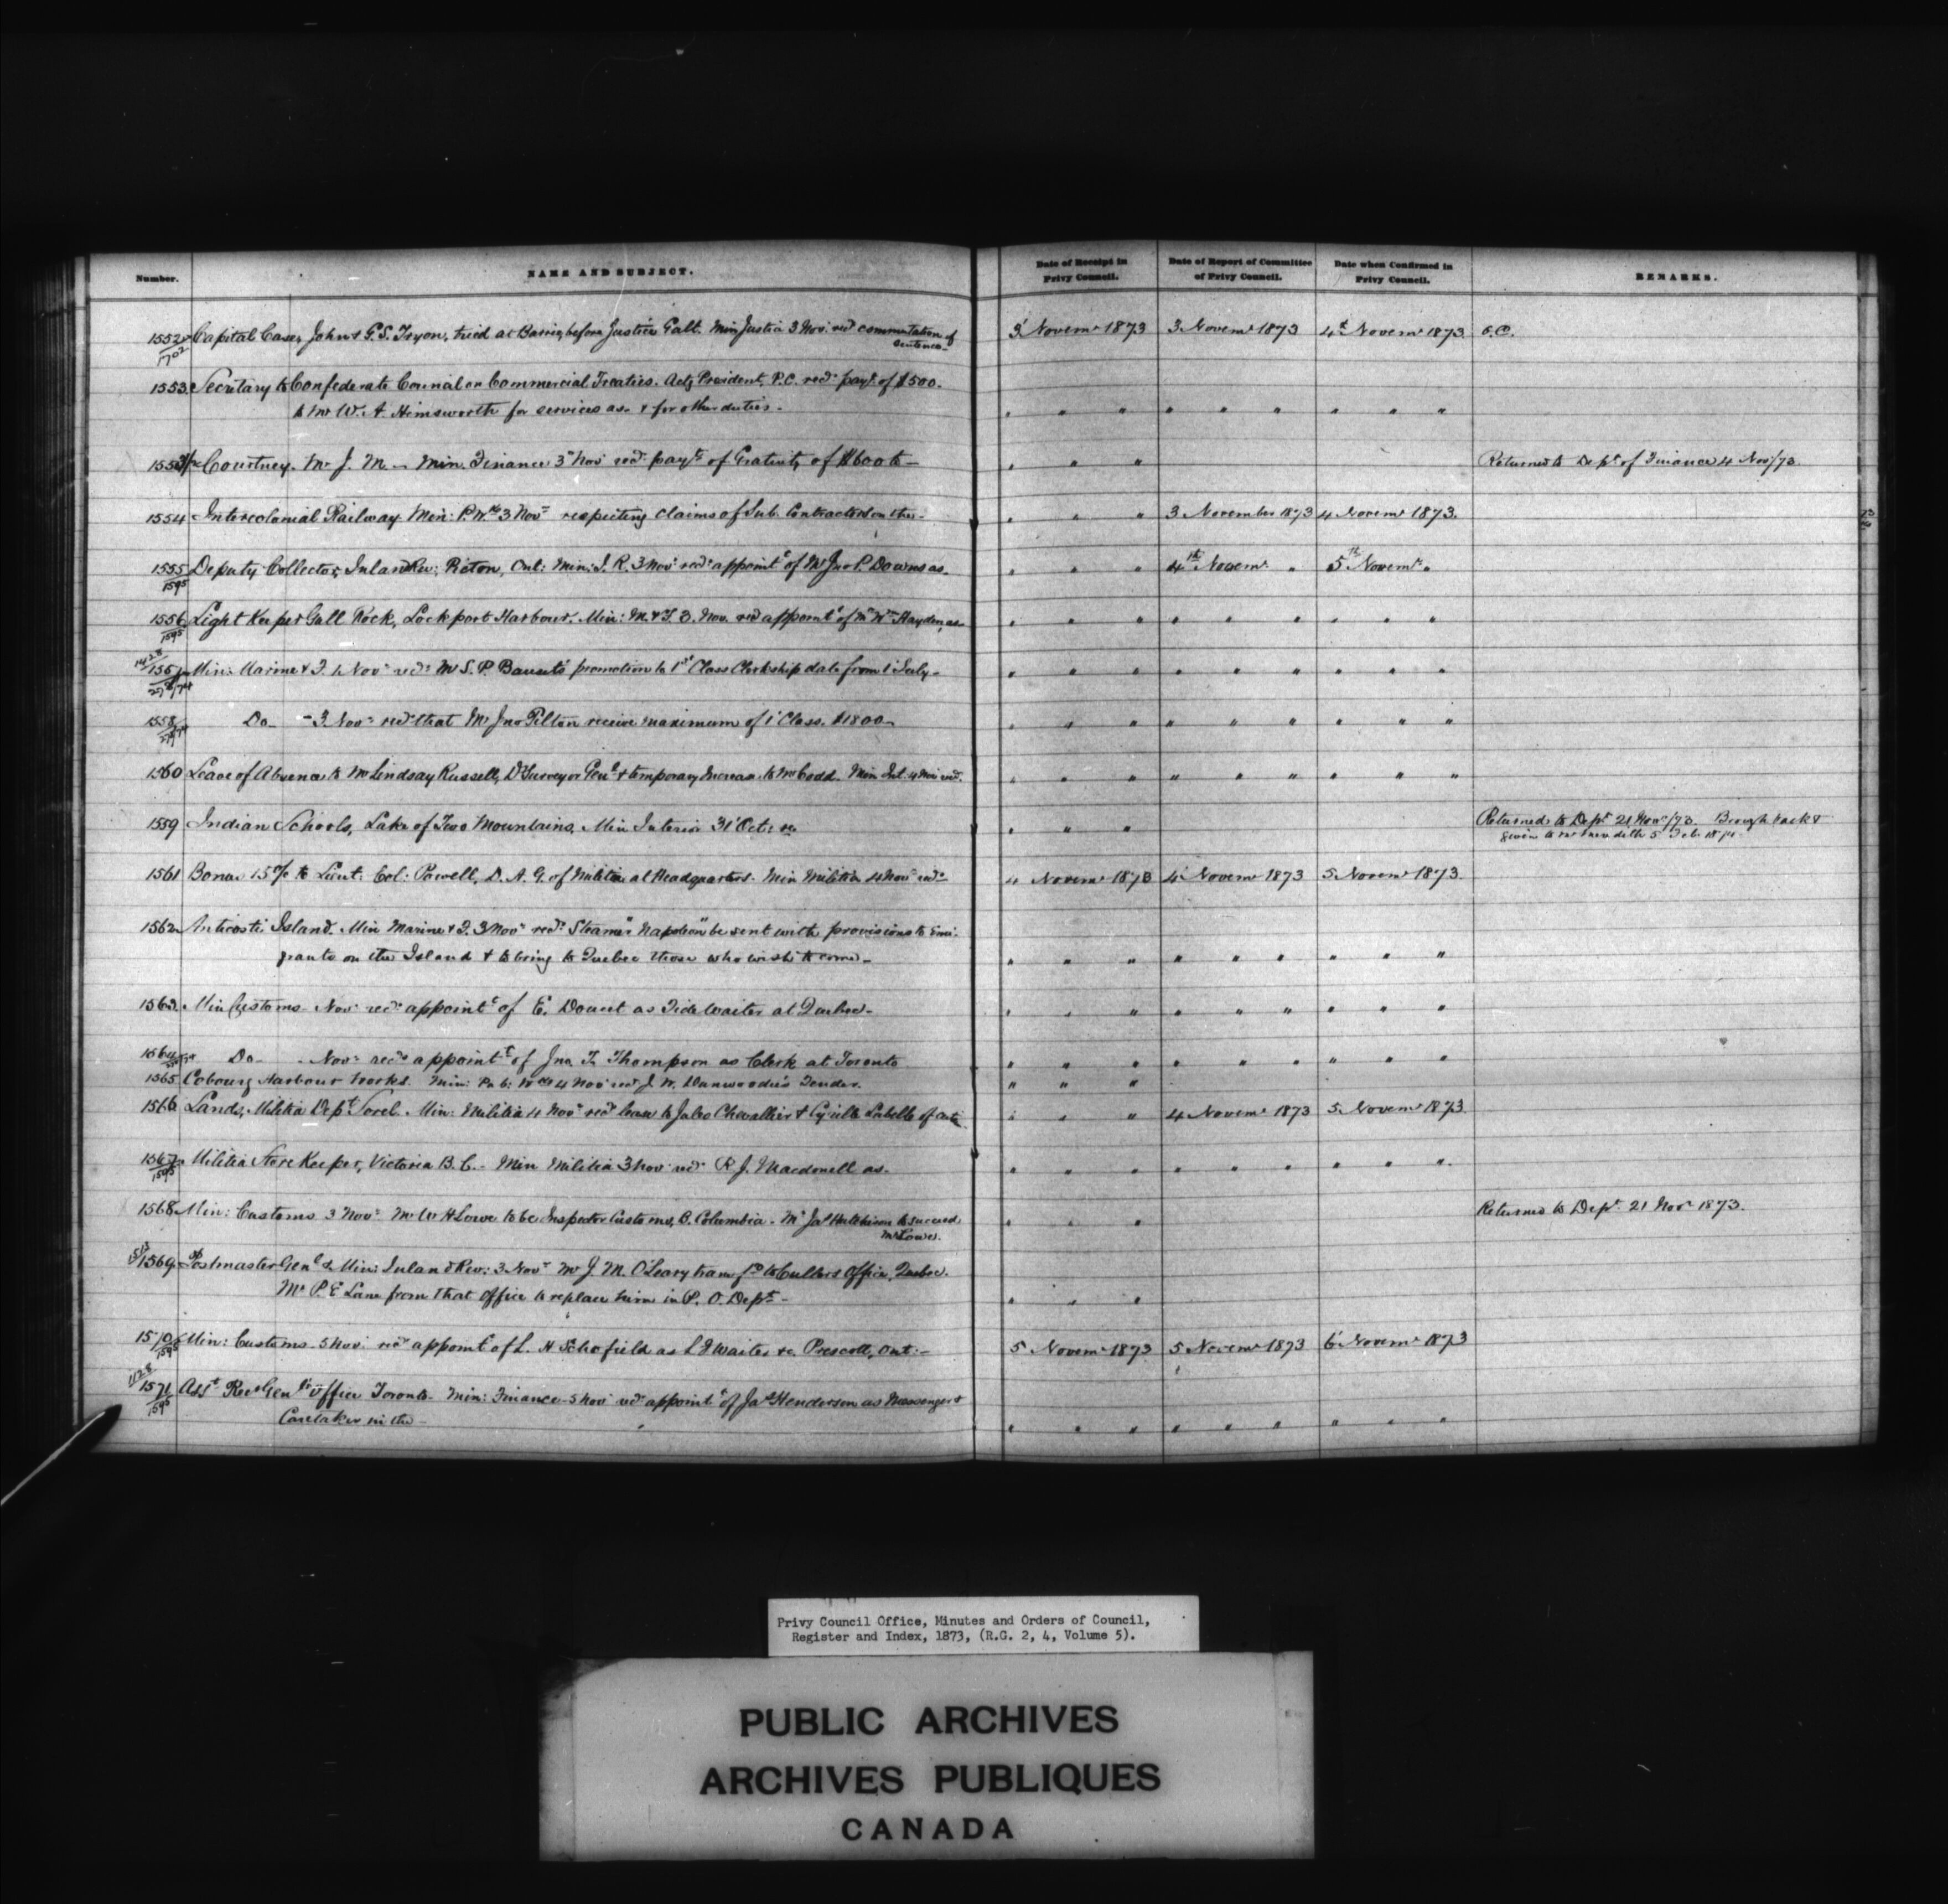 Number. NAME AND SUBJECT. Date of Receipt in Privy Council. Date of Report of Committee of Privy Council. Date when Confirmed in Privy Council. REMARKS.
1552 Capital Cases, John & G.S. Tryon, tried at Barrie, before Justice Galt. Min Justice 3 Nov: recd commutation of 3 Novemr 1873 3 Novemr 1873 4th Novemr 1873 O.C.
1702 sentence—
1553 Secretary to Confederate Council on Commercial Treaties. Actg President P.C. recds payt of $500.
to Mr W. A. Himsworth for services as & for other duties. " " " " " " " " "
1553½ Courtney. Mr J. M. — Min. Finance 3d Nov recds payt of Gratuity of $600 to — " " " Returned to Dept of Finance 4 Nov/73.
1554 Intercolonial Railway. Min: P. Wks 3 Novr respecting claims of Sub Contractors on the— " " " 3 November 1873 4 Novemr 1873.
1555 Deputy Collector, Inland Rev: Picton, Ont: Min: I. R. 3 Novr recds appointt of Mr Jno P. Downs as. " " " 4th Novemr " 5th Novemr "
1595
1556 Light Keeper Gull Rock, Lockport Harbour. Min: M. & F. 3. Nov. recd appointt of Mr Wm Hayden, as— " " " " " " " " "
1595
1557 Min: Marine & F. Novr recds Mr S. P. promotion to 1st Class Clerkship date from 1 July— " " " " " " " " "
1558 Do— — 3 Novr recds that Mr Jno Tilton receive maximum of 1 Class. $1800— " " " " " " " " "
1560 Leave of Absence to Mr Lindsay Russell, Dy Surveyor Genl & temporary Increase to Mr Codd. Min Int. 4 Nov recd. " " " " " " " " "
1559 Indian Schools, Lake of Two Mountains. Min Interior 31 Oct: re " " " Returned to Dept 21 Nov/73. Brough back &
given to Mr Meredith 5 Feb 1874.
1561 Bonus 15% to Lieut: Col: Powell, D. A. G. of Militia at Headquarters. Min Militia 4 Novr recds 4 Novemr 1873 4 Novemr 1873 5 Novemr 1873
1562 Anticosti Island. Min Marine & F. 3 Novr recds Steamer "Napoleon" be sent with provisions to Emi-
grants on the Island & to bring to Quebec those who wish to come— " " " " " " " " "
1563 Min Customs Novr recds appointt of E. Doucet as Tide Waiter at Quebec— " " " " " " " " "
1564 Do— Novr recds appointt of Jno. T. Thompson as Clerk at Toronto " " " " " " " " "
1565 Cobourg Harbour Works. Min: Pub: Wks 4 Nov recd J. W. Dunwoodie's Tender. " " "
1566 Lands, Militia Dept Sorel. Min: Militia 4 Novr recds lease to Jules Chevallier & Cyrille Labelle of " " " 4 Novemr 1873 5 Novemr 1873
1567 Militia Store Keeper, Victoria B. C.— Min Militia 3 Nov recds R J. Macdonell as— " " " " " " " " "
1595
1568 Min: Customs 3 Novr Mr W H Lowe to be Inspector Customs, B. Columbia. Mr Jas Hutchison to succeed " " " Returned to Dept 21 Novr 1873.
Mr Lowe.
1569 Postmaster Genl & Min: Inland Rev: 3 Novr Mr J. M. O'Leary transfd to Cullers Office, Quebec.
Mr P. E Lane from that Office to replace him in P. O. Dept— " " "
1570 Min: Customs. 5 Nov: recds appointt of L. H Schofield as L Waiter &c. Prescott, Ont:— 5 Novemr 1873 5 Novemr 1873 6 Novemr 1873
1595
1571 Asst Recr Genl's Office Toronto— Min: Finance 5 Nov recds appointt of Jas Henderson as Messenger &
1595 Caretaker in the— " " " " " " " " "
Privy Council Office, Minutes and Orders of Council,
Register and Index, 1873, (R.G. 2, 4, Volume 5).
PUBLIC ARCHIVES
ARCHIVES PUBLIQUES
CANADA